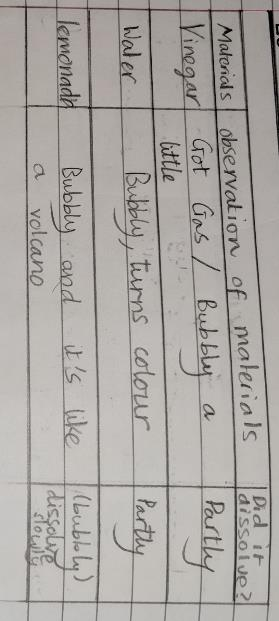 Materials observation of materials Did it
dissolve?
Vinegar Got Gas / Bubbly a Partly
little
Water Bubbly, turns colour Partly
lemonade Bubbly and it's like (bubbly)
a volcano dissolve
slowly